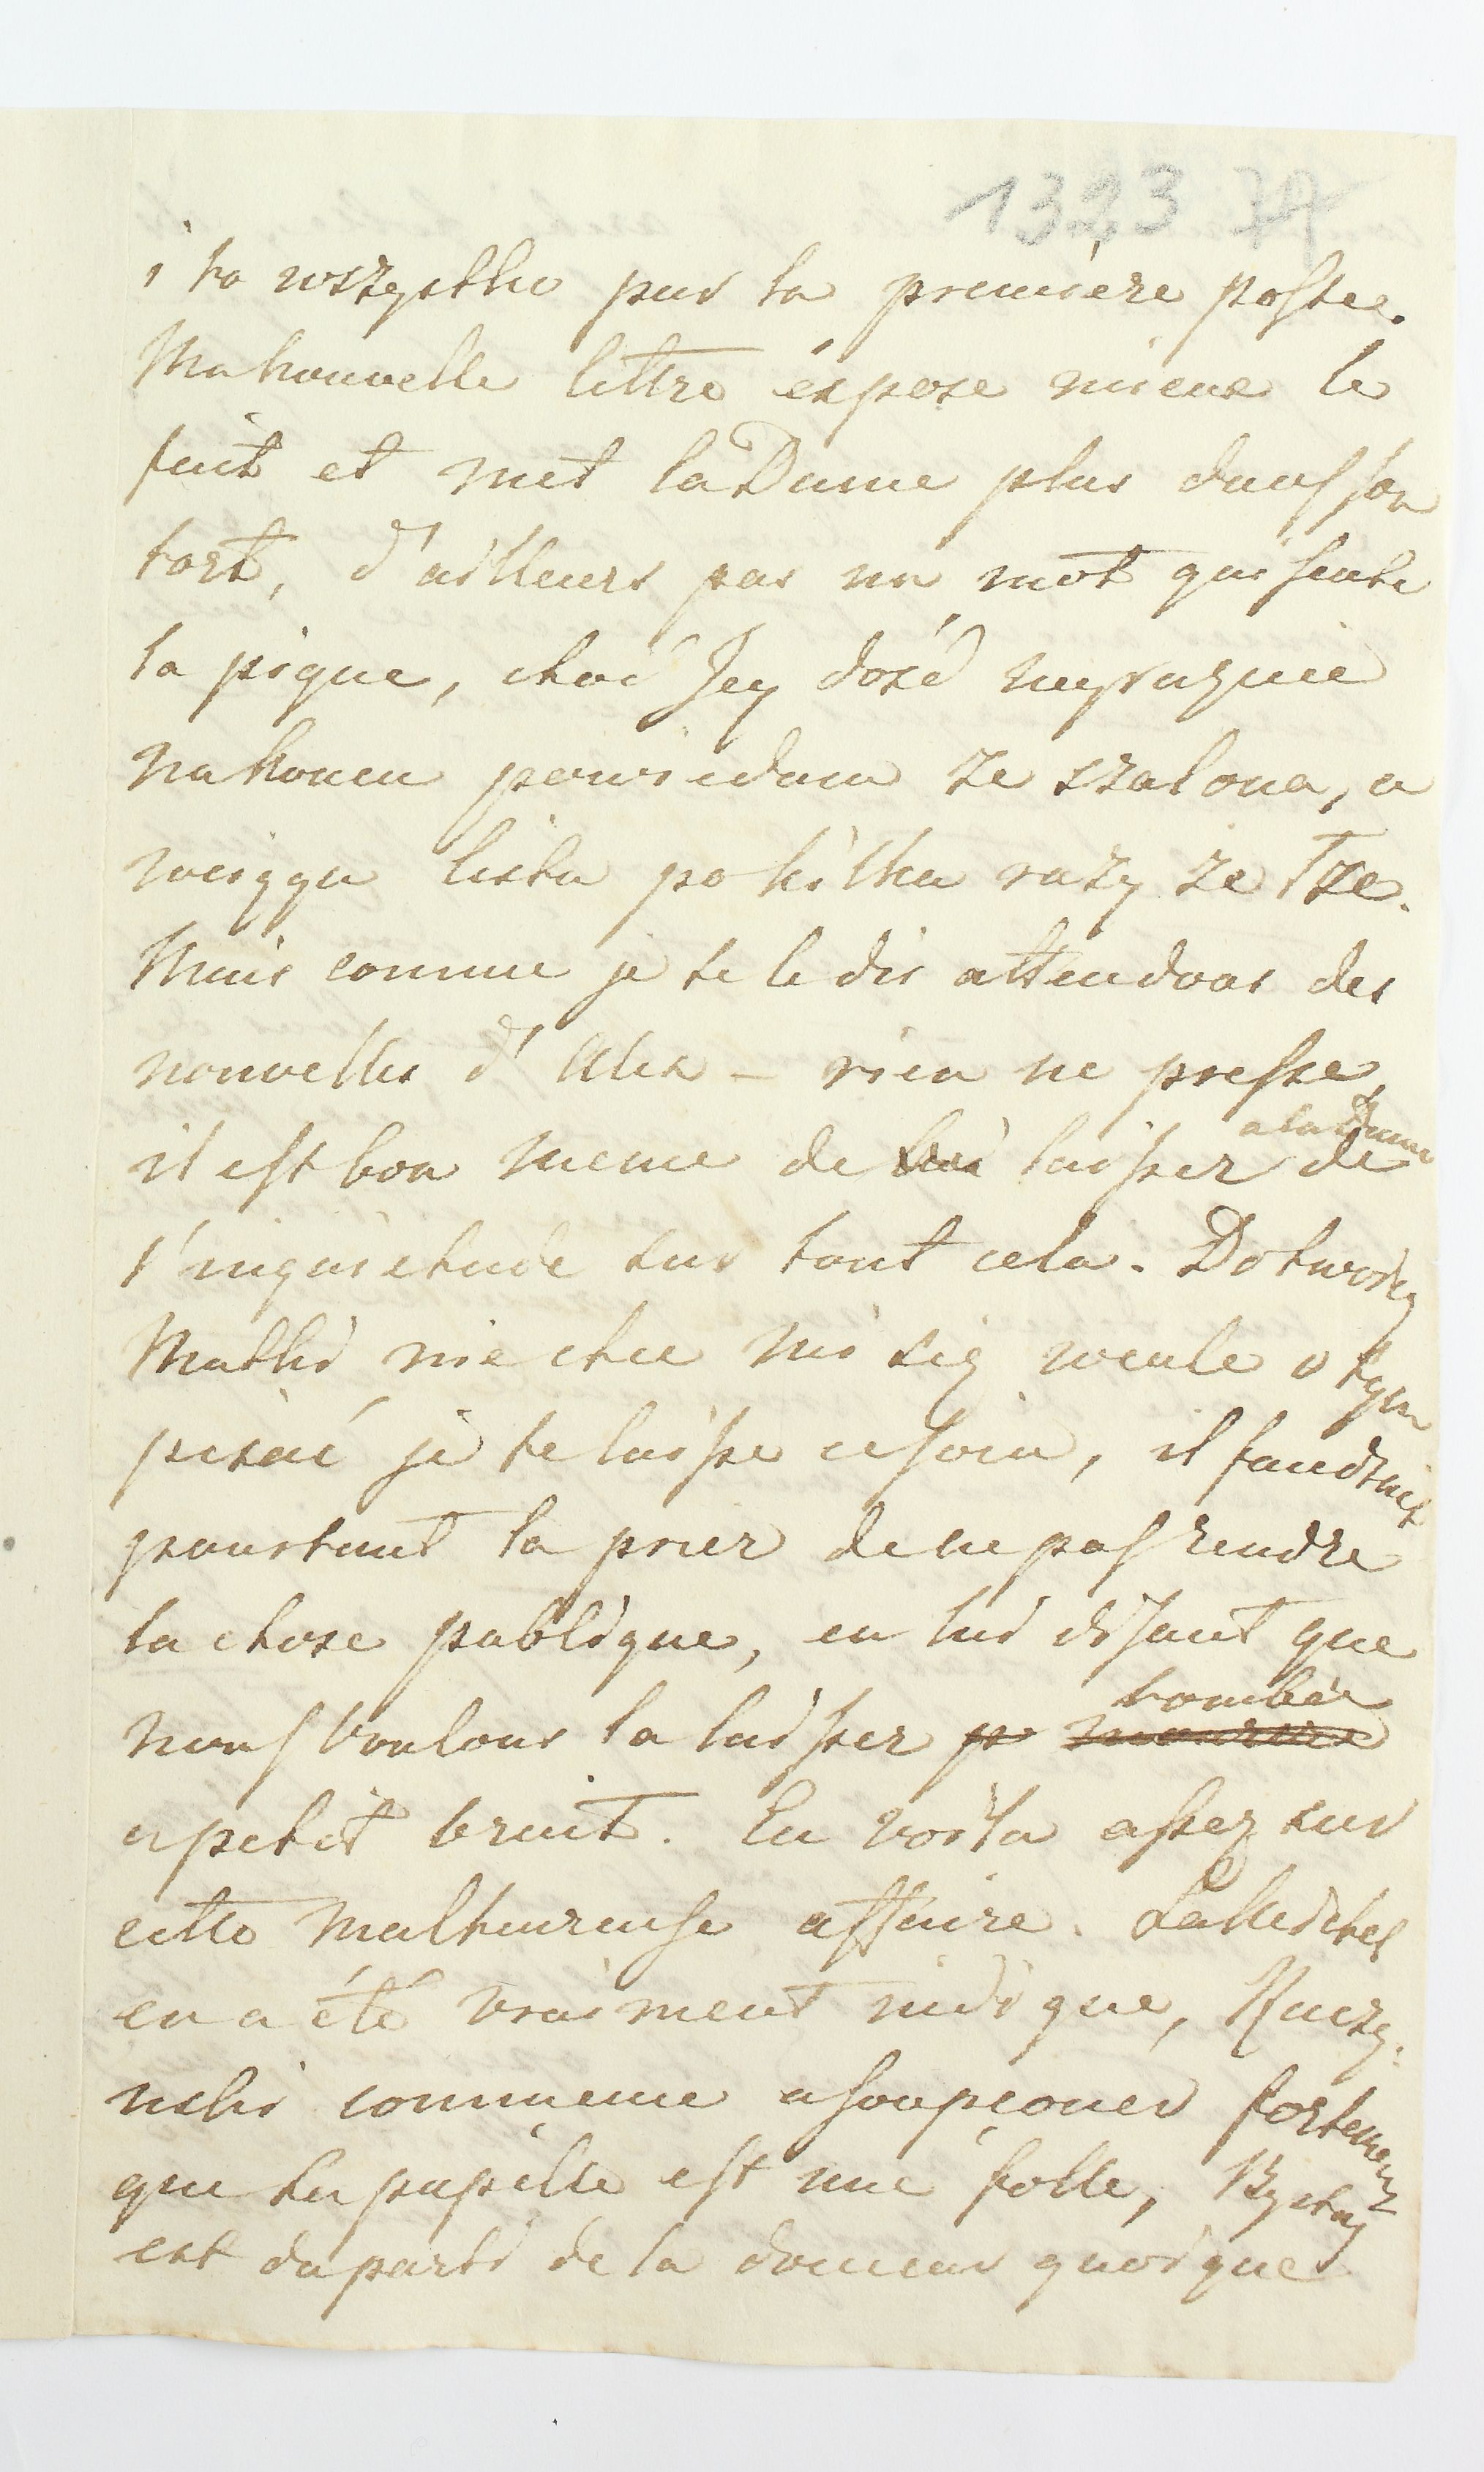 1323 74
i to wszystko par la première poste.
Ma nouvelle lettre expose mieux le
fait et met la Dame plus dans son
tort, d'ailleurs pas un mot qui sente
la pique, choć Jey dość wyraznie
na koncu powiedam ze szalona, a
wciągu listu po kilka razy ze Łże.
Mais comme je te le dis attendons des
nouvelles d'Alex – rien ne presse,
il est bon meme de lui laisser a la Dame de
l'inquietude sur tout cela. Do twoiey
Matki nie chce mi się wcale o tym
pisać je te laisse ce soin, il faudrait
pourtant la prier de ne pas rendre
la chose publique, en lui disant que
nous voulons la laisser p mourir tomber
a petit bruit. En voila assez sur
cette malheureuse affaire.
en a été vraiment
comme meme a soupçoner fortement
que ta pupille est une folle,
est du parti de la douceur quoique